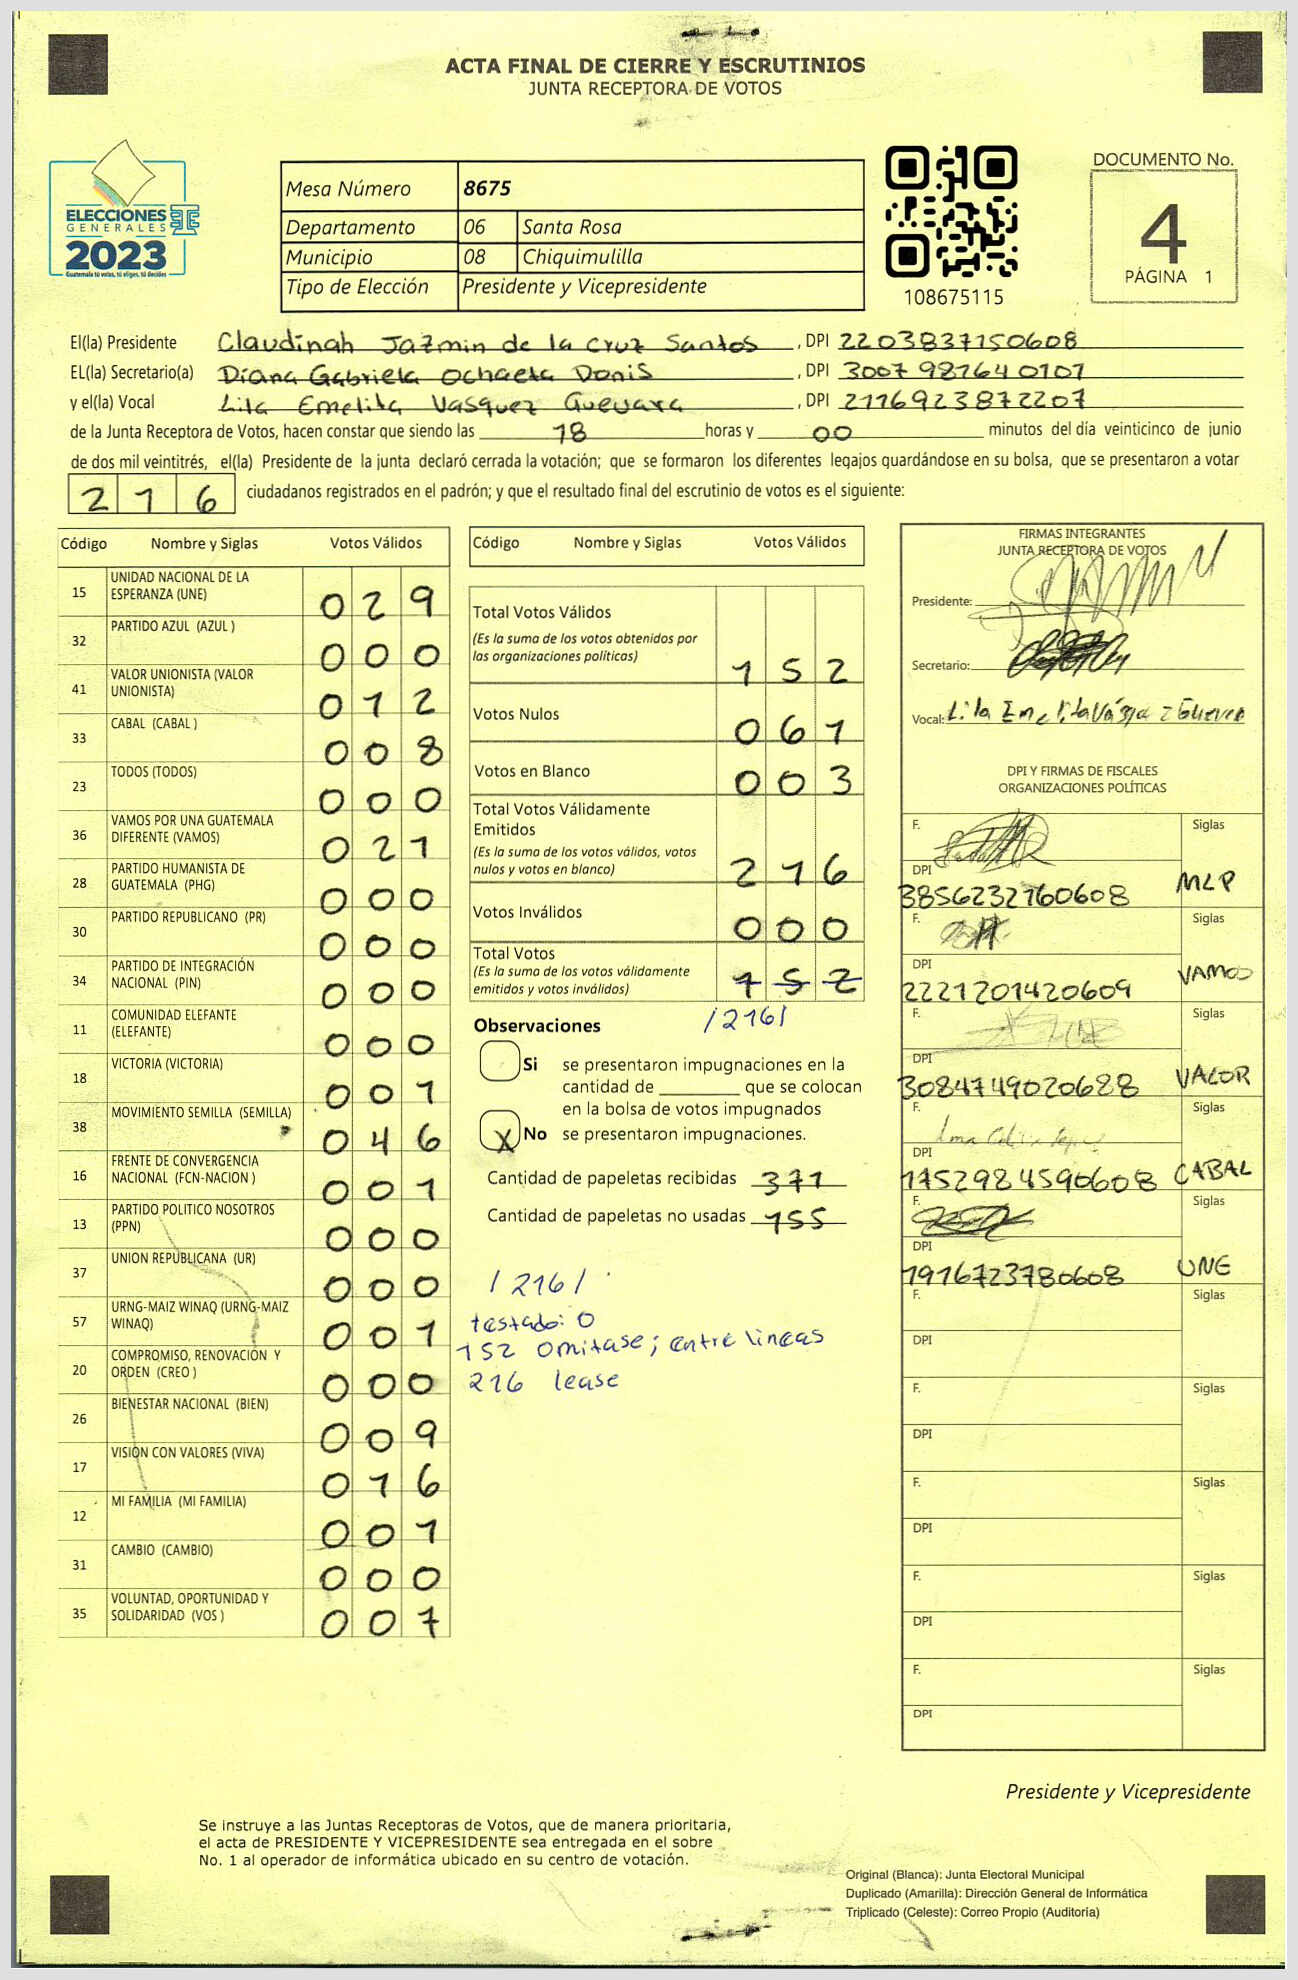 ACTA FINAL DE CIERRE Y ESCRUTINIOS
JUNTA RECEPTORA DE VOTOS
ELECCIONES
GENERALES
2023
Guatemala tú votas, tú eliges, tú decides
Mesa Número 8675
Departamento 06 Santa Rosa
Municipio 08 Chiquimulilla
Tipo de Elección Presidente y Vicepresidente
108675115
DOCUMENTO No.
4
PÁGINA 1
El(la) Presidente Claudinah Jazmin de la Cruz Santos, DPI 2203837150608
EL(la) Secretario(a) Diana Gabriela Ochaeta Donis, DPI 3007981640101
y el(la) Vocal Lila Emelita Vasquez Guevara, DPI 2116923872207
de la Junta Receptora de Votos, hacen constar que siendo las 18 horas y 00 minutos del día veinticinco de junio
de dos mil veintitrés, el(la) Presidente de la junta declaró cerrada la votación; que se formaron los diferentes legajos guardándose en su bolsa, que se presentaron a votar
216 ciudadanos registrados en el padrón; y que el resultado final del escrutinio de votos es el siguiente:
Código Nombre y Siglas Votos Válidos
15 UNIDAD NACIONAL DE LA ESPERANZA (UNE) 029
32 PARTIDO AZUL (AZUL ) 000
41 VALOR UNIONISTA (VALOR UNIONISTA) 012
33 CABAL (CABAL ) 008
23 TODOS (TODOS) 000
36 VAMOS POR UNA GUATEMALA DIFERENTE (VAMOS) 021
28 PARTIDO HUMANISTA DE GUATEMALA (PHG) 000
30 PARTIDO REPUBLICANO (PR) 000
34 PARTIDO DE INTEGRACIÓN NACIONAL (PIN) 000
11 COMUNIDAD ELEFANTE (ELEFANTE) 000
18 VICTORIA (VICTORIA) 001
38 MOVIMIENTO SEMILLA (SEMILLA) 046
16 FRENTE DE CONVERGENCIA NACIONAL (FCN-NACION ) 001
13 PARTIDO POLITICO NOSOTROS (PPN) 000
37 UNION REPUBLICANA (UR) 000
57 URNG-MAIZ WINAQ (URNG-MAIZ WINAQ) 001
20 COMPROMISO, RENOVACIÓN Y ORDEN (CREO ) 000
26 BIENESTAR NACIONAL (BIEN) 009
17 VISIÓN CON VALORES (VIVA) 016
12 MI FAMILIA (MI FAMILIA) 001
31 CAMBIO (CAMBIO) 000
35 VOLUNTAD, OPORTUNIDAD Y SOLIDARIDAD (VOS ) 007
Código Nombre y Siglas Votos Válidos
Total Votos Válidos 152
(Es la suma de los votos obtenidos por
las organizaciones políticas)
Votos Nulos 061
Votos en Blanco 003
Total Votos Válidamente
Emitidos 216
(Es la suma de los votos válidos, votos
nulos y votos en blanco)
Votos Inválidos 000
Total Votos 152
(Es la suma de los votos válidamente
emitidos y votos inválidos)
/216/
Observaciones
Si se presentaron impugnaciones en la
cantidad de ________ que se colocan
en la bolsa de votos impugnados
X No se presentaron impugnaciones.
Cantidad de papeletas recibidas 371
Cantidad de papeletas no usadas 155
/216/
testado: 0
152 Omitase; entre lineas
216 lease
FIRMAS INTEGRANTES
JUNTA RECEPTORA DE VOTOS
Presidente:
Secretario:
Vocal: Lila Emelita
DPI Y FIRMAS DE FISCALES
ORGANIZACIONES POLÍTICAS
F. Siglas
DPI 3856232760608 MLP
F. Siglas
DPI 2221201420609 VAMOS
F. Siglas
DPI 3084749020688 VALOR
F. Siglas
DPI 1752984590608 CABAL
F. Siglas
DPI 1916723780608 UNE
F. Siglas
DPI
F. Siglas
DPI
F. Siglas
DPI
F. Siglas
DPI
F. Siglas
DPI
Presidente y Vicepresidente
Se instruye a las Juntas Receptoras de Votos, que de manera prioritaria,
el acta de PRESIDENTE Y VICEPRESIDENTE sea entregada en el sobre
No. 1 al operador de informática ubicado en su centro de votación.
Original (Blanca): Junta Electoral Municipal
Duplicado (Amarilla): Dirección General de Informática
Triplicado (Celeste): Correo Propio (Auditoría)